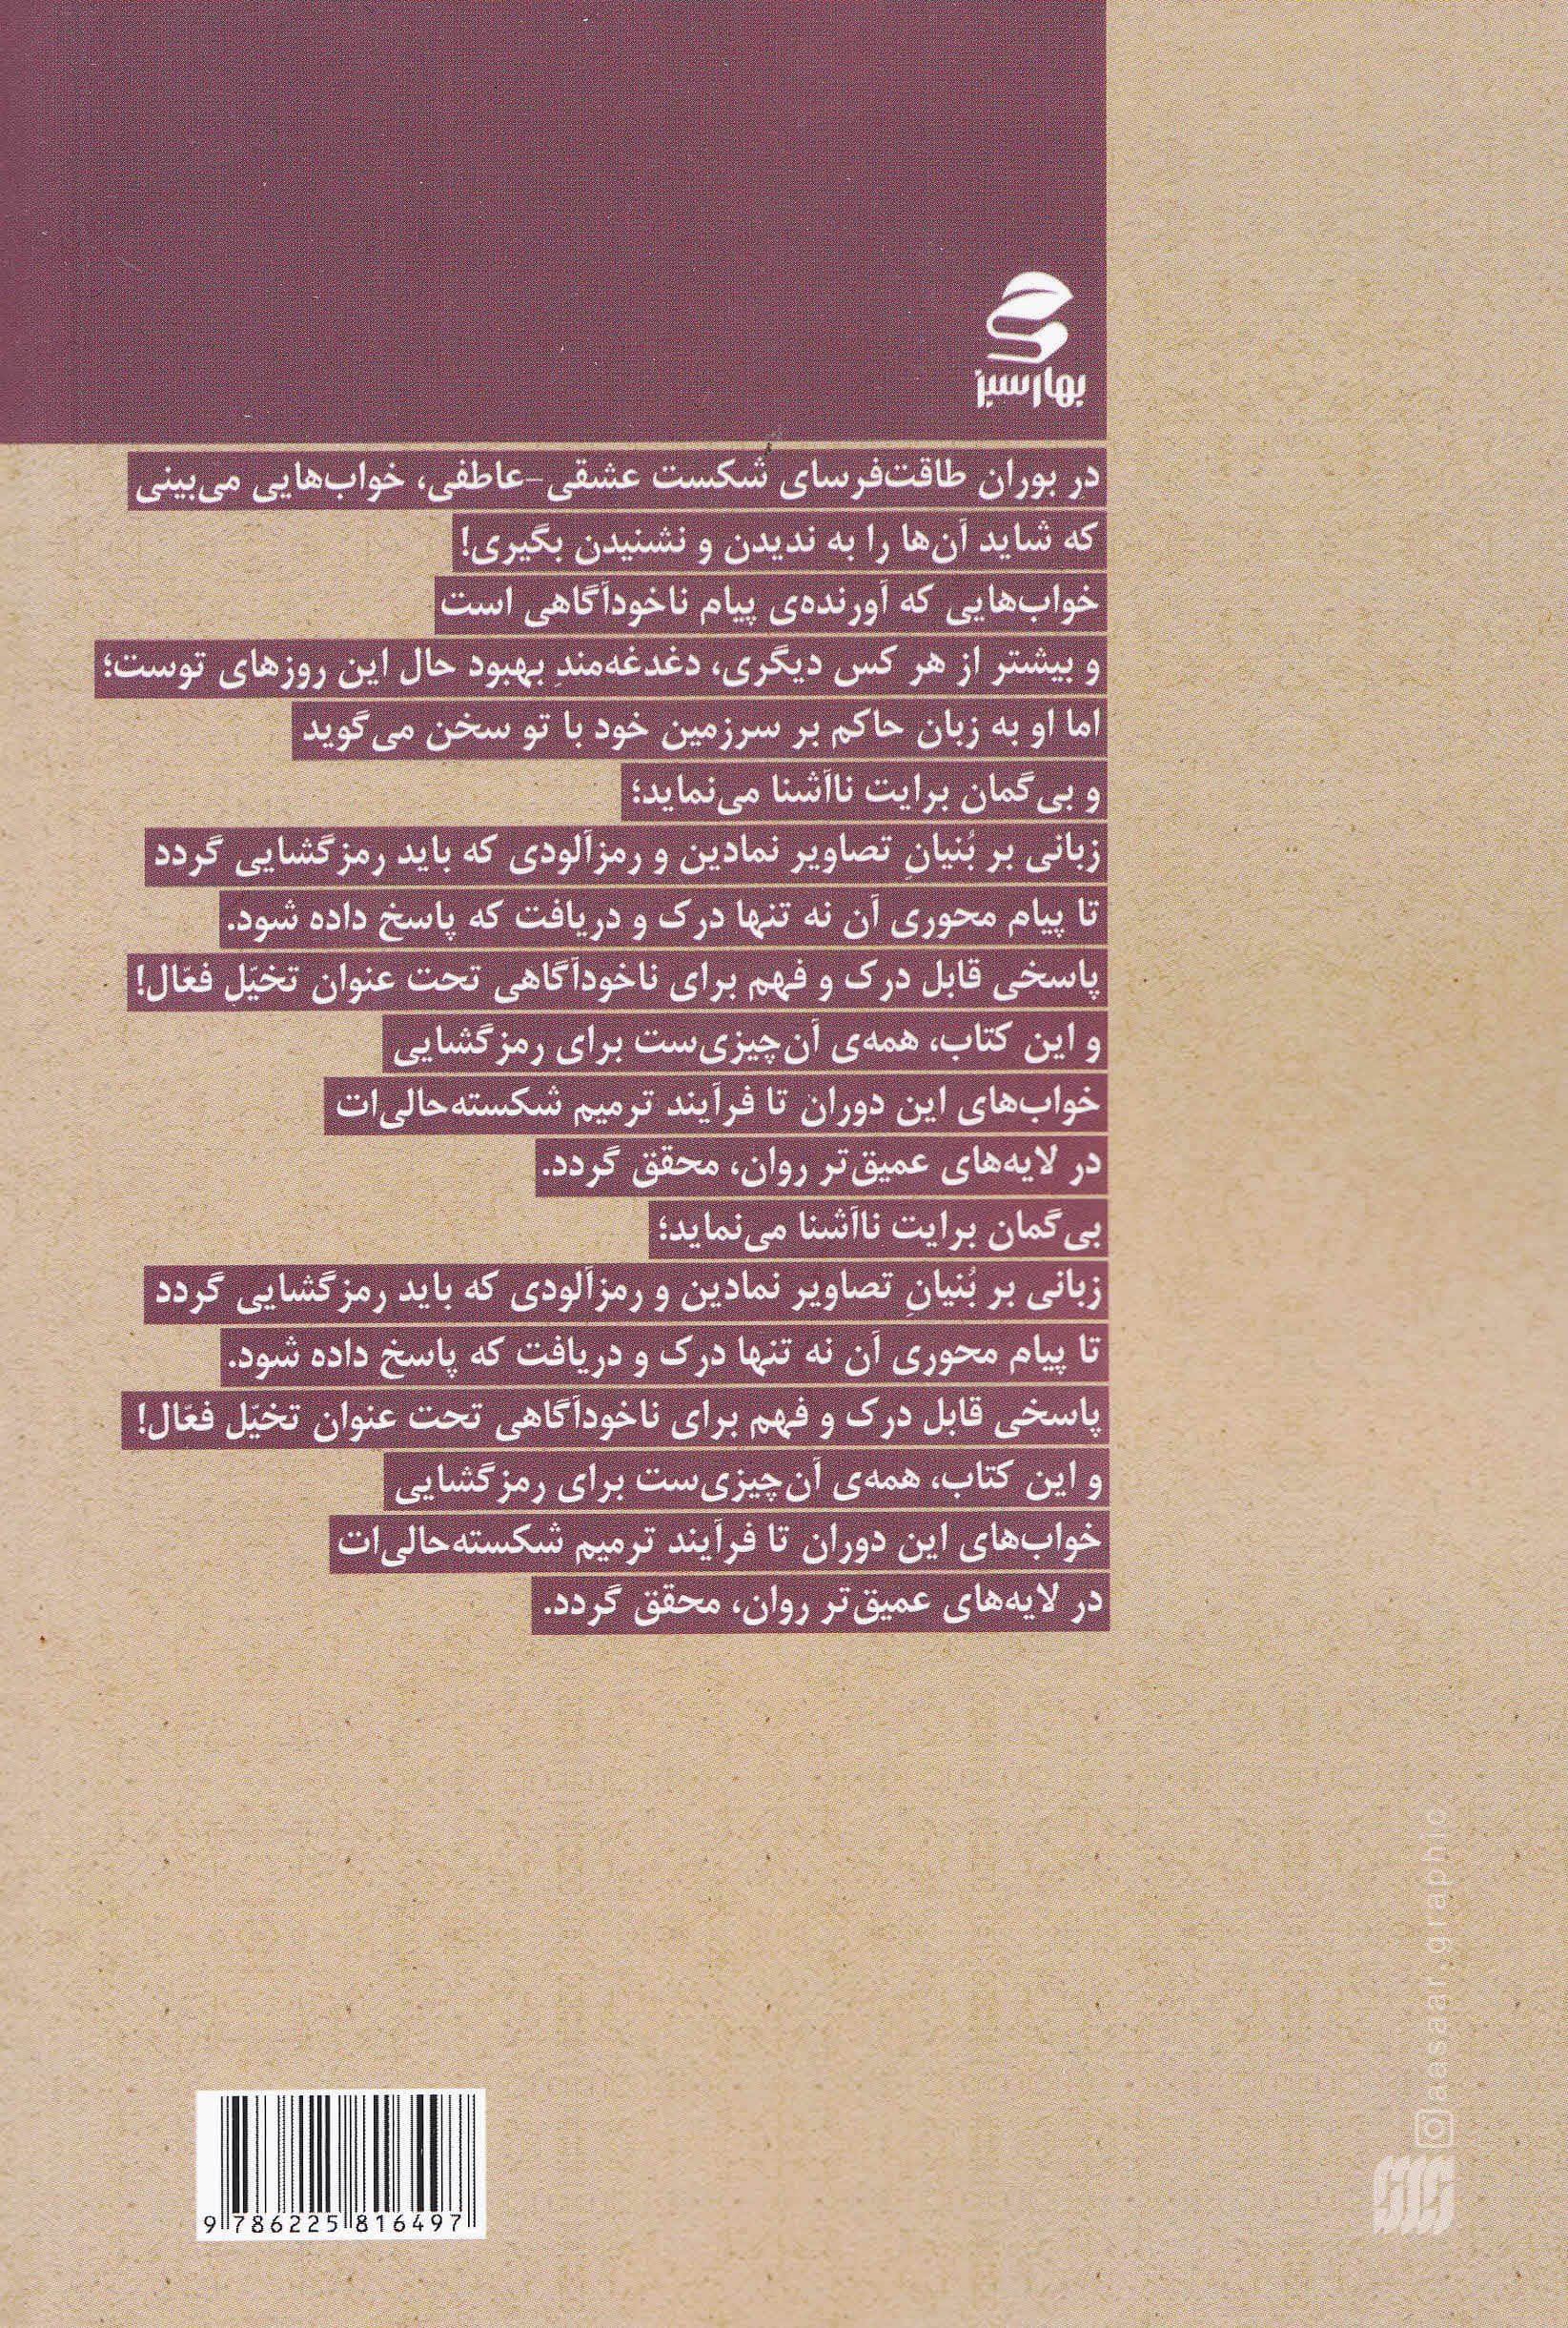 بهارسبز
در بوران طاقت‌فرسای شکست عشقی-عاطفی، خواب‌هایی می‌بینی
که شاید آن‌ها را به ندیدن و نشنیدن بگیری!
خواب‌هایی که آورنده‌ی پیام ناخودآگاهی است
و بیشتر از هر کس دیگری، دغدغه‌مندِ بهبود حال این روزهای توست؛
اما او به زبان حاکم بر سرزمین خود با تو سخن می‌گوید
و بی‌گمان برایت ناآشنا می‌نماید؛
زبانی بر بُنیانِ تصاویر نمادین و رمزآلودی که باید رمزگشایی گردد
تا پیام محوری آن نه تنها درک و دریافت که پاسخ داده شود.
پاسخی قابل درک و فهم برای ناخودآگاهی تحت عنوان تخیّلِ فعّال!
و این کتاب، همه‌ی آن‌چیزی‌ست برای رمزگشایی
خواب‌های این دوران تا فرآیند ترمیم شکسته‌حالی‌ات
در لایه‌های عمیق‌تر روان، محقق گردد.
بی‌گمان برایت ناآشنا می‌نماید؛
زبانی بر بُنیانِ تصاویر نمادین و رمزآلودی که باید رمزگشایی گردد
تا پیام محوری آن نه تنها درک و دریافت که پاسخ داده شود.
پاسخی قابل درک و فهم برای ناخودآگاهی تحت عنوان تخیّل فعّال!
و این کتاب، همه‌ی آن‌چیزی‌ست برای رمزگشایی
خواب‌های این دوران تا فرآیند ترمیم شکسته‌حالی‌ات
در لایه‌های عمیق‌تر روان، محقق گردد.
aasaar.graphic
9 786225 816497